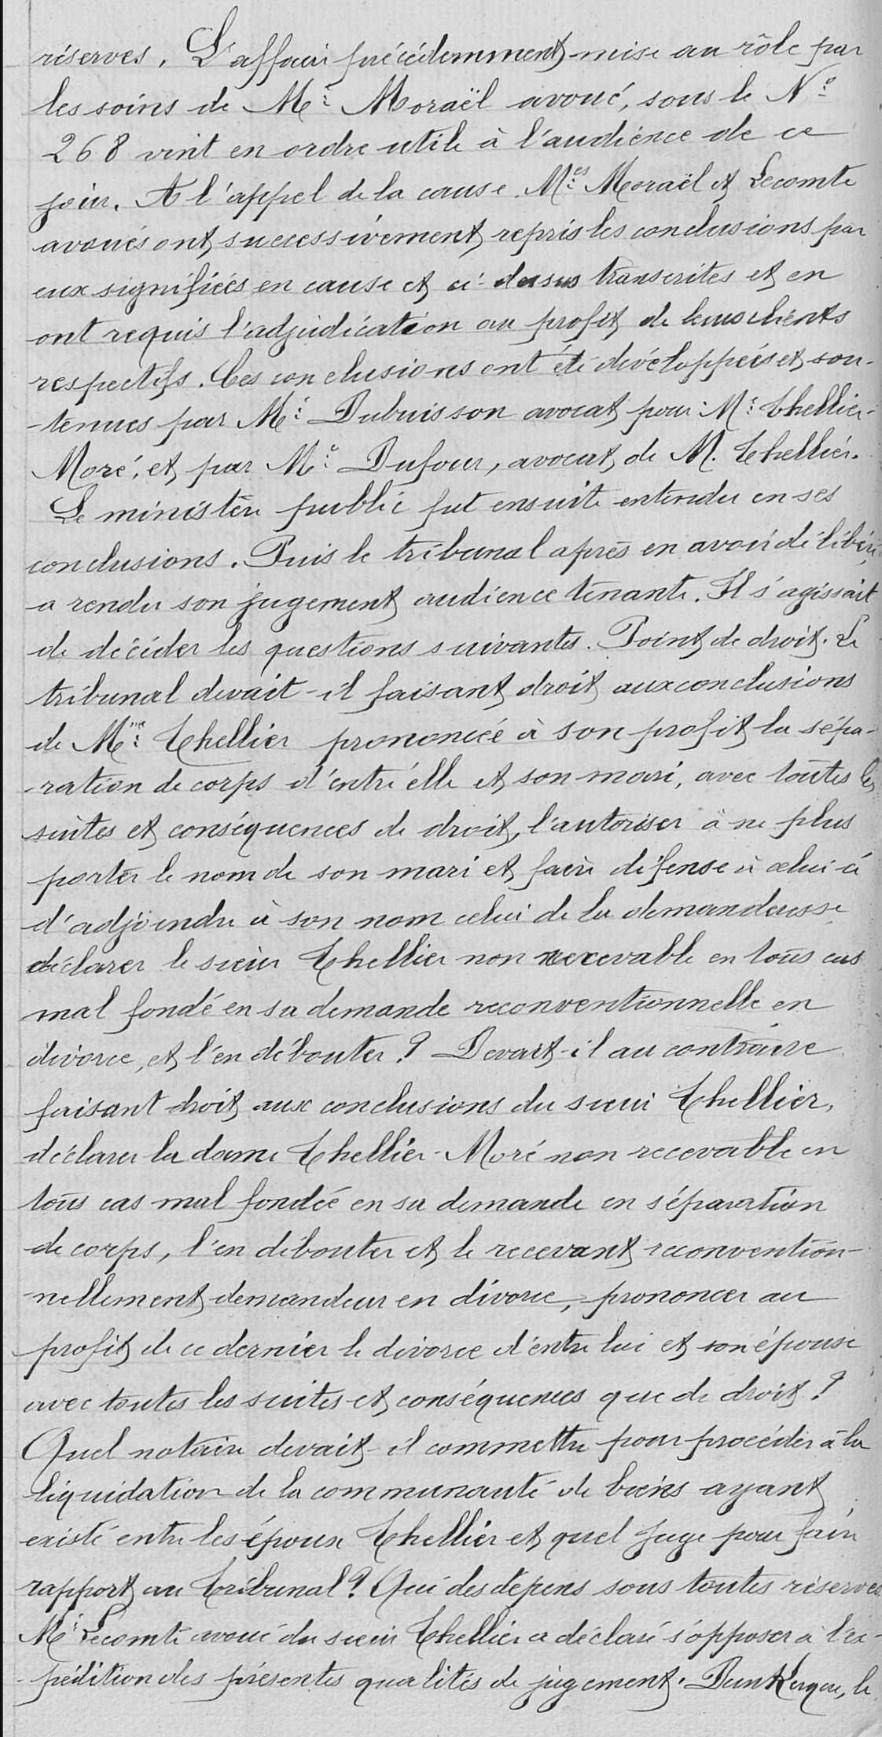 réserves. L'affaire précédemment mise au rôle par
les soins de Me Moraël avoué, sous le No
268 vint en ordre utile à l'audience de ce
jour. A l'appel de la cause Mes Moraël et Lecomte
avoués ont successivement repris les conclusions par
eux signifiées en cause et ci-dessus transcrites et en
ont requis l'adjudication au profit de leurs clients
respectifs. Ces conclusions ont été développées et sou-
-tenues par Me Dubuisson avocat pour Me Chellier-
Moré, et par Me Dufour, avocat de M. Chellier.
Le ministère public fut ensuite entendu en ses
conclusions. Puis le tribunal après en avoir délibéré
a rendu son jugement audience tenante. Il s'agissait
de décider les questions suivantes. Point de droit. Le
tribunal devait-il faisant droit aux conclusions
de Me Chellier prononcée à son profit la sépa-
-ration de corps d'entre elle et son mari, avec toutes les
suites et conséquences de droit, l'autoriser à ne plus
porter le nom de son mari et faire défense à celui-ci
d'adjoindre à son nom celui de la demanderesse
déclarer le sieur Chellier non recevable en tous cas
mal fondé en sa demande reconventionnelle en
divorce, et l'en débouter ? Devait-il au contraire
faisant droit aux conclusions du sieur Chellier,
déclarer la dame Chellier-Moré non recevable en
tous cas mal fondée en sa demande en séparation
de corps, l'en débouter et le recevant reconvention-
-nellement demandeur en divorce, prononcer au
profit de ce dernier le divorce d'entre lui et son épouse
avec toutes les suites et conséquences que de droit ?
Quel notaire devait-il commettre pour procéder à la
liquidation de la communauté de biens ayant
existé entre les époux Chellier et quel juge pour faire
rapport au tribunal ? Qui des dépens sous toutes réserves
Me Lecomte avoué du sieur Chellier a déclaré s'opposer à l'ex-
-pédition des présentes qualités de jugement. Dunkerque, le